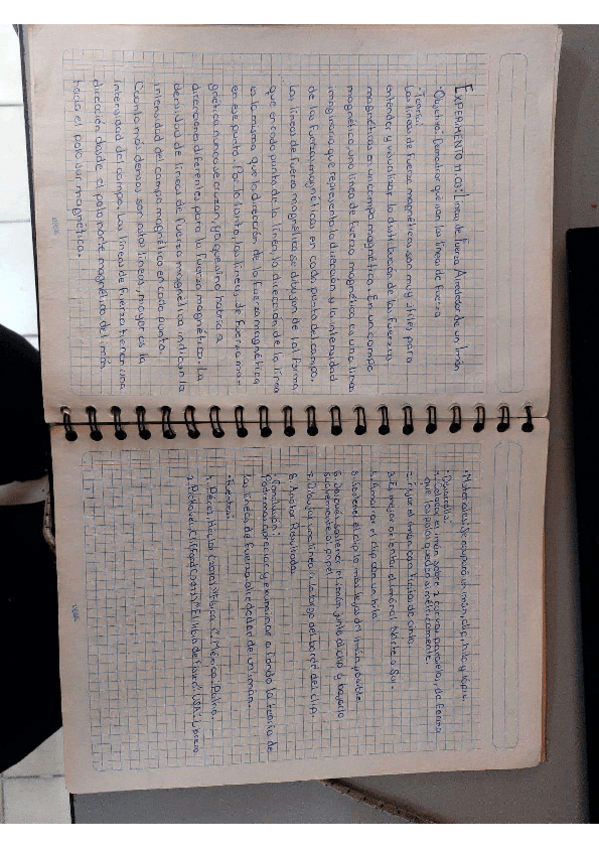 EXPERIMENTO M.03: Líneas de Fuerza Alrededor de un Imán
·Objetivo: Demostrar que son las líneas de fuerza
·Teoría:
Las líneas de fuerza magnéticas son muy útiles para
entender y visualizar la distribución de las fuerzas
magnéticas en un campo magnético. En un campo
magnético, una línea de fuerza magnética es una línea
imaginaria que representa la dirección y la intensidad
de las fuerzas magnéticas en cada punto del campo.
Las líneas de fuerza magnética se dibujan de tal forma,
que en cada punto de la línea, la dirección de la línea
es la misma que la dirección de la fuerza magnética
en ese punto. Por lo tanto, las líneas de fuerza mag-
nética nunca se cruzan, ya que si no habría a
direcciones diferentes para la fuerza magnética. La
densidad de líneas de fuerza magnética indican la
intensidad del campo magnético en cada punto.
Cuanto más densas son estas líneas, mayor es la
intensidad del campo. Las líneas de fuerza tienen una
dirección desde el polo norte magnético del imán
hacia el polo sur magnético.
·Materiales: Se ocupará un imán, clip, hilo y lápiz.
·Desarrollo:
1. Colocar el imán sobre 2 curvas paralela, de forma
que los polos queden simétricamente.
2. Fijar el imán con tiritas de cinta.
3. Es mejor orientar el imán al Norte o Sur.
4. Amarrar el clip con un hilo.
5. Sostener el clip lo más lejos del imán posible
6. Después sostener el imán junto al clip y bajarlo
suavemente al papel
7. Dibujar una línea a lo largo del borde del clip.
8. Anotar Resultados
·Conclusión:
Podremos apreciar y examinar a fondo la teoría de
las líneas de fuerza alrededor de un imán.
1. Pérez, Hugo (2015) "Física I". México. Patria.
2. Pickover, Clifford (2011) "El libro de la Física" USA: